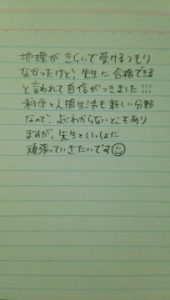 地理がきらいで受けるつもり
なかったけど、先生に合格できる
と言われて自信がつきました!!!
科学と人間生活も新しい分野
なので、よくわからないこともあり
ますが、先生といっしょに
頑張っていきたいです